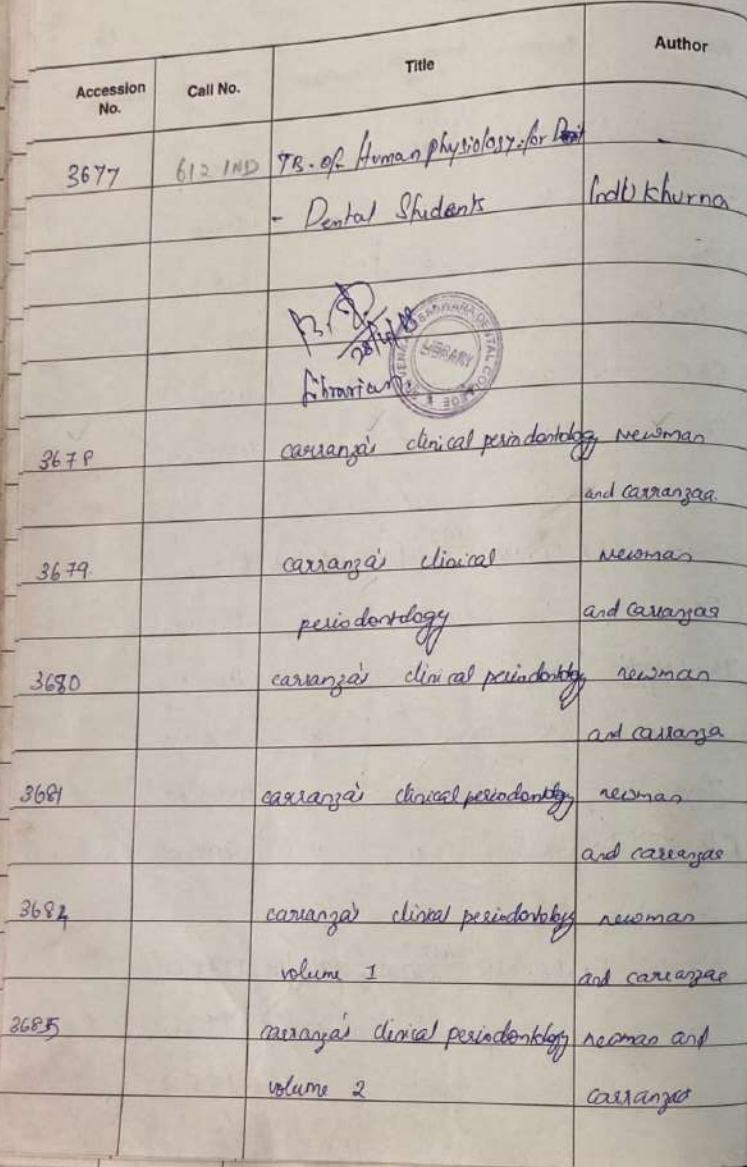 Accession No. Call No. Title Author
3677 612 IND TB. of Human physiology. for
- Dental Students Indu Khurna
28/4/08
LIBRARY DENTAL COLLEGE
Librarian
3678 carranza's clinical periodontology Newman
and Carranzaa.
3679. carranza's clinical newman
periodontology and carranzas
3680 carranza's clinical periodontology newman
and carranza
3681 carranza's clinical periodontology newman
and carranzas
3684 carranza's clinical periodontology newman
volume 1 and carranzas
3685 carranza's clinical periodontology newman and
volume 2 carranzas